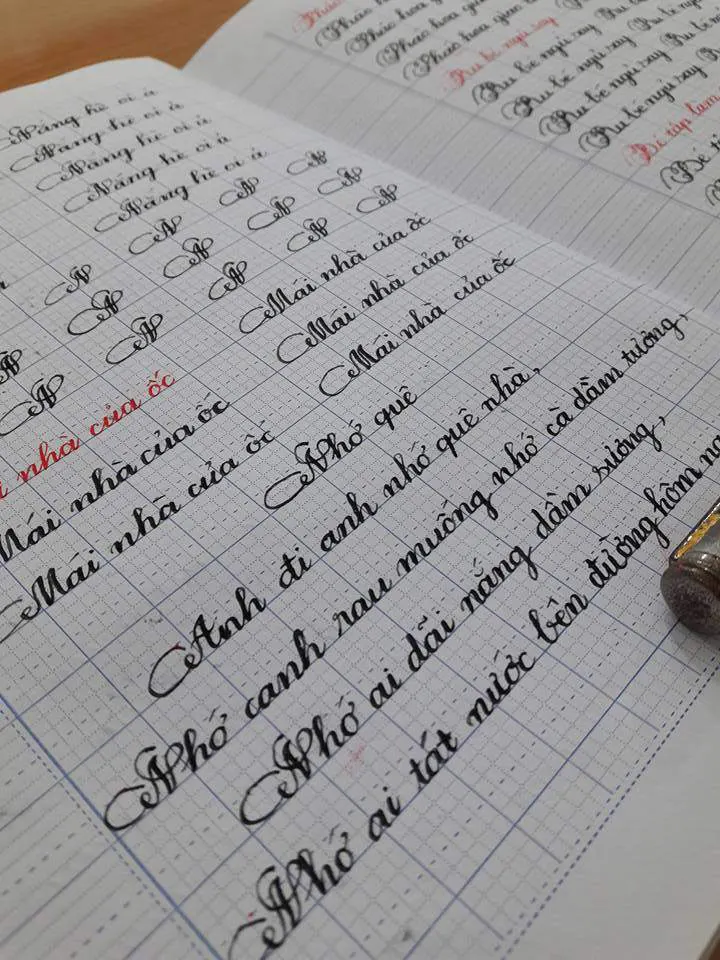 Nắng hè oi ả
Nắng hè oi ả
Nắng hè oi ả
Nắng hè oi ả
Nắng hè oi ả
N N N
N N N N
N N N N N
Mái nhà của ốc
Mái nhà của ốc
Mái nhà của ốc
nhà của ốc
Mái nhà của ốc
Mái nhà của ốc
Nhớ quê
Anh đi anh nhớ quê nhà,
Nhớ canh rau muống nhớ cà dầm tương,
Nhớ ai dãi nắng dầm sương,
Nhớ ai tát nước bên đường hôm
Pháo hoa giao
Pháo hoa giao
Pháo hoa giao
Ru bé ngủ say
Ru bé ngủ say Ru bé
Ru bé ngủ say Ru bé
Ru bé ngủ say Ru bé
Ru bé ngủ say Ru bé
Bé tập làm
Bé
Bé